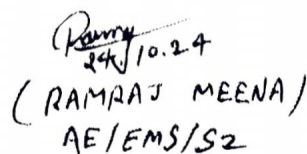 24/10.24
(RAMRAJ MEENA)
AE/EMS/S2